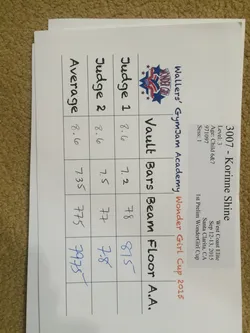 3007 - Korinne Shine
Level: 3
Age: Child 6&7
971097
Sess: 1
West Coast Elite
Sep 12-13, 2015
Santa Clarita, CA
1st Prelim WonderGirl Cup
Wallers' GymJam Academy Wonder Girl Cup 2015
Vault Bars Beam Floor A.A.
Judge 1 8.6 7.2 78 815
Judge 2 8.6 7.5 77 78
Average 8.6 735 775 7975